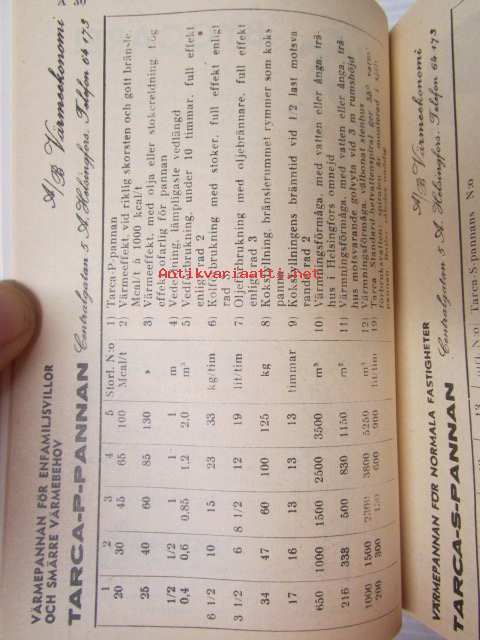 VÄRMEPANNAN FÖR ENFAMILJSVILLOR
OCH SMÄRRE VÄRMEBEHOV
TARCA-P-PANNAN
A/B Värmeekonomi
Centralgatan 5 A. Helsingfors. Telefon 64 173
1) Tarca-P-pannan Storl. N:o 5 4 3 2 1
2) Värmeeffekt, vid riklig skorsten och gott bränsle, Mcal/t à 1000 kcal/t Mcal/t 100 65 45 30 20
3) Värmeeffekt, med olja eller stokereldning tåg effekt ofarlig för pannan » 130 85 60 40 25
4) Vedeldning, lämpligaste vedlängd m 1 1 1 1/2 1/2
5) Vedförbrukning, under 10 timmar, full effekt enligt rad 2 m³ 2,0 1,2 0,85 0,6 0,4
6) Kolförbrukning med stoker, full effekt enligt rad kg/tim 33 23 15 10 6 1/2
7) Oljeförbrukning med oljebrännare, full effekt enligt rad 3 lit/tim 19 12 8 1/2 6 3 1/2
8) Kokseldning, bränslerummet rymmer som koks kg 125 100 60 47 34
9) Kokseldningens bränntid vid 1/2 last motsvarande rad 2 timmar 13 13 13 16 17
10) Värmningsförmåga, med vatten eller ånga, trähus i Helsingfors omnejd m³ 3500 2500 1500 1000 650
11) Värmningsförmåga, med vatten eller ånga, trähus motsvarande golvyta vid 3 m rumshöjd m² 1150 830 500 338 216
12) Värmningsförmåga, välbonat stenhus m³ 5250 3800 1500 1000
lit/tim 900 600 300 200
Antikvariaatti.net
VÄRMEPANNAN FÖR NORMALA FASTIGHETER
TARCA-S-PANNAN
A/B Värmeekonomi
Centralgatan 5 A. Helsingfors. Telefon 64 173
Tarca-S-pannans N:o